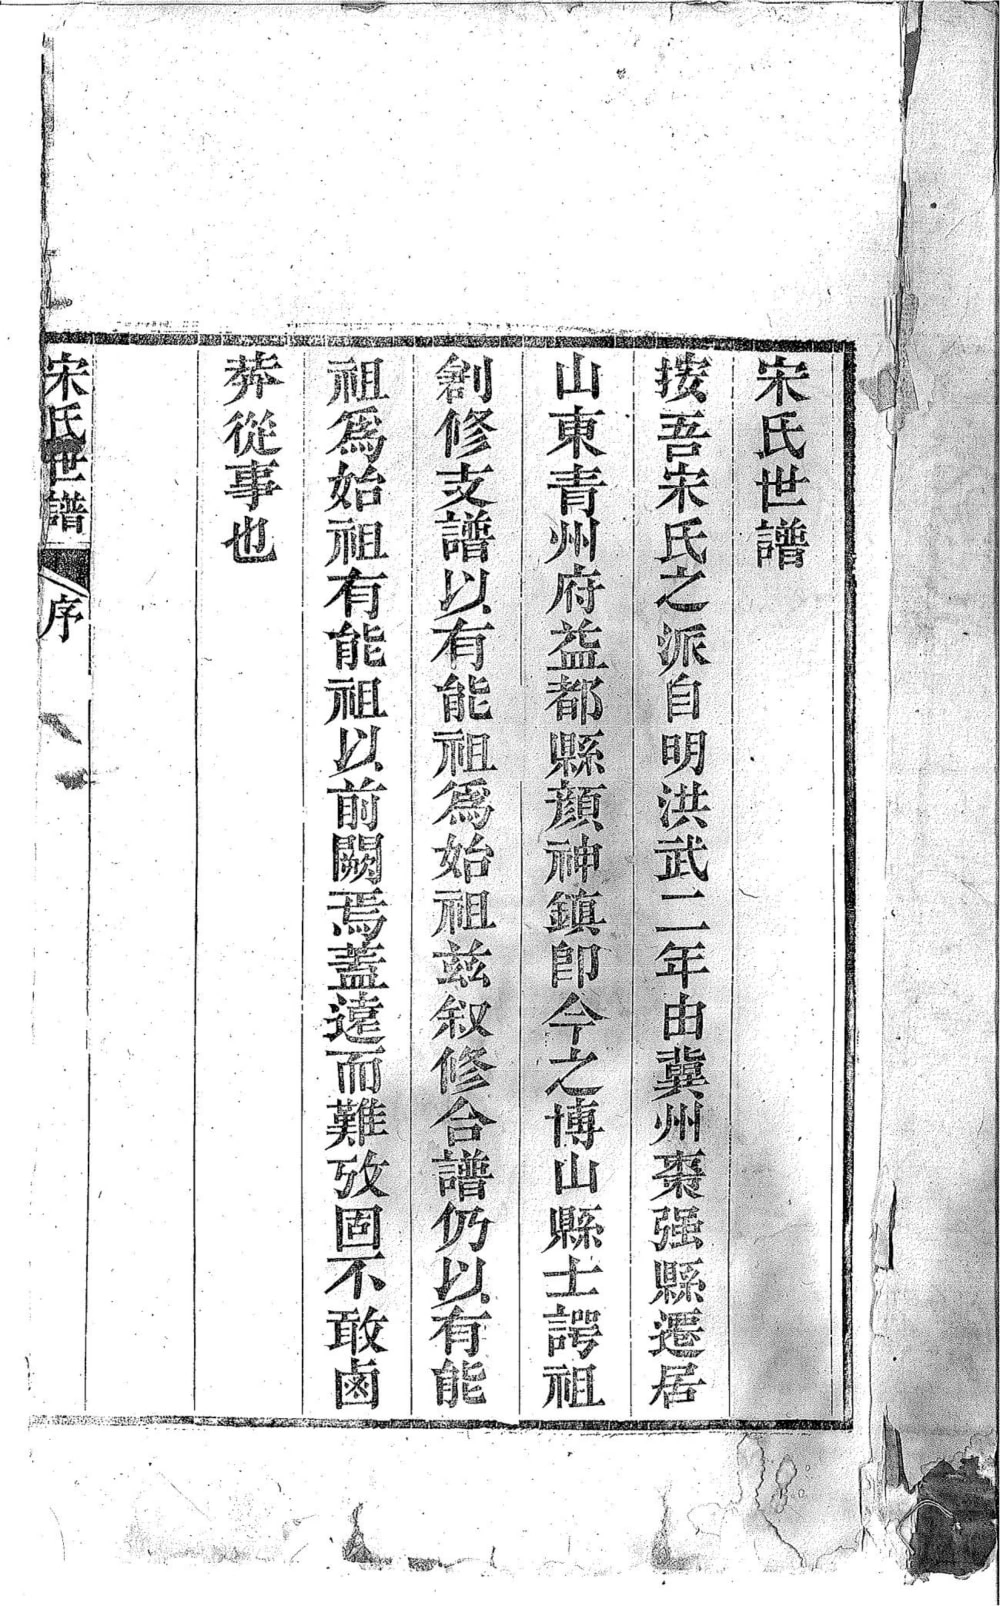 宋氏世譜
按吾宋氏之派自明洪武二年由冀州棗强縣遷居
山東青州府益都縣顔神鎮即今之博山縣士諤祖
創修支譜以有能祖爲始祖兹叙修合譜仍以有能
祖爲始祖有能祖以前闕焉蓋遠而難攷固不敢鹵
莽從事也
宋氏世譜
序